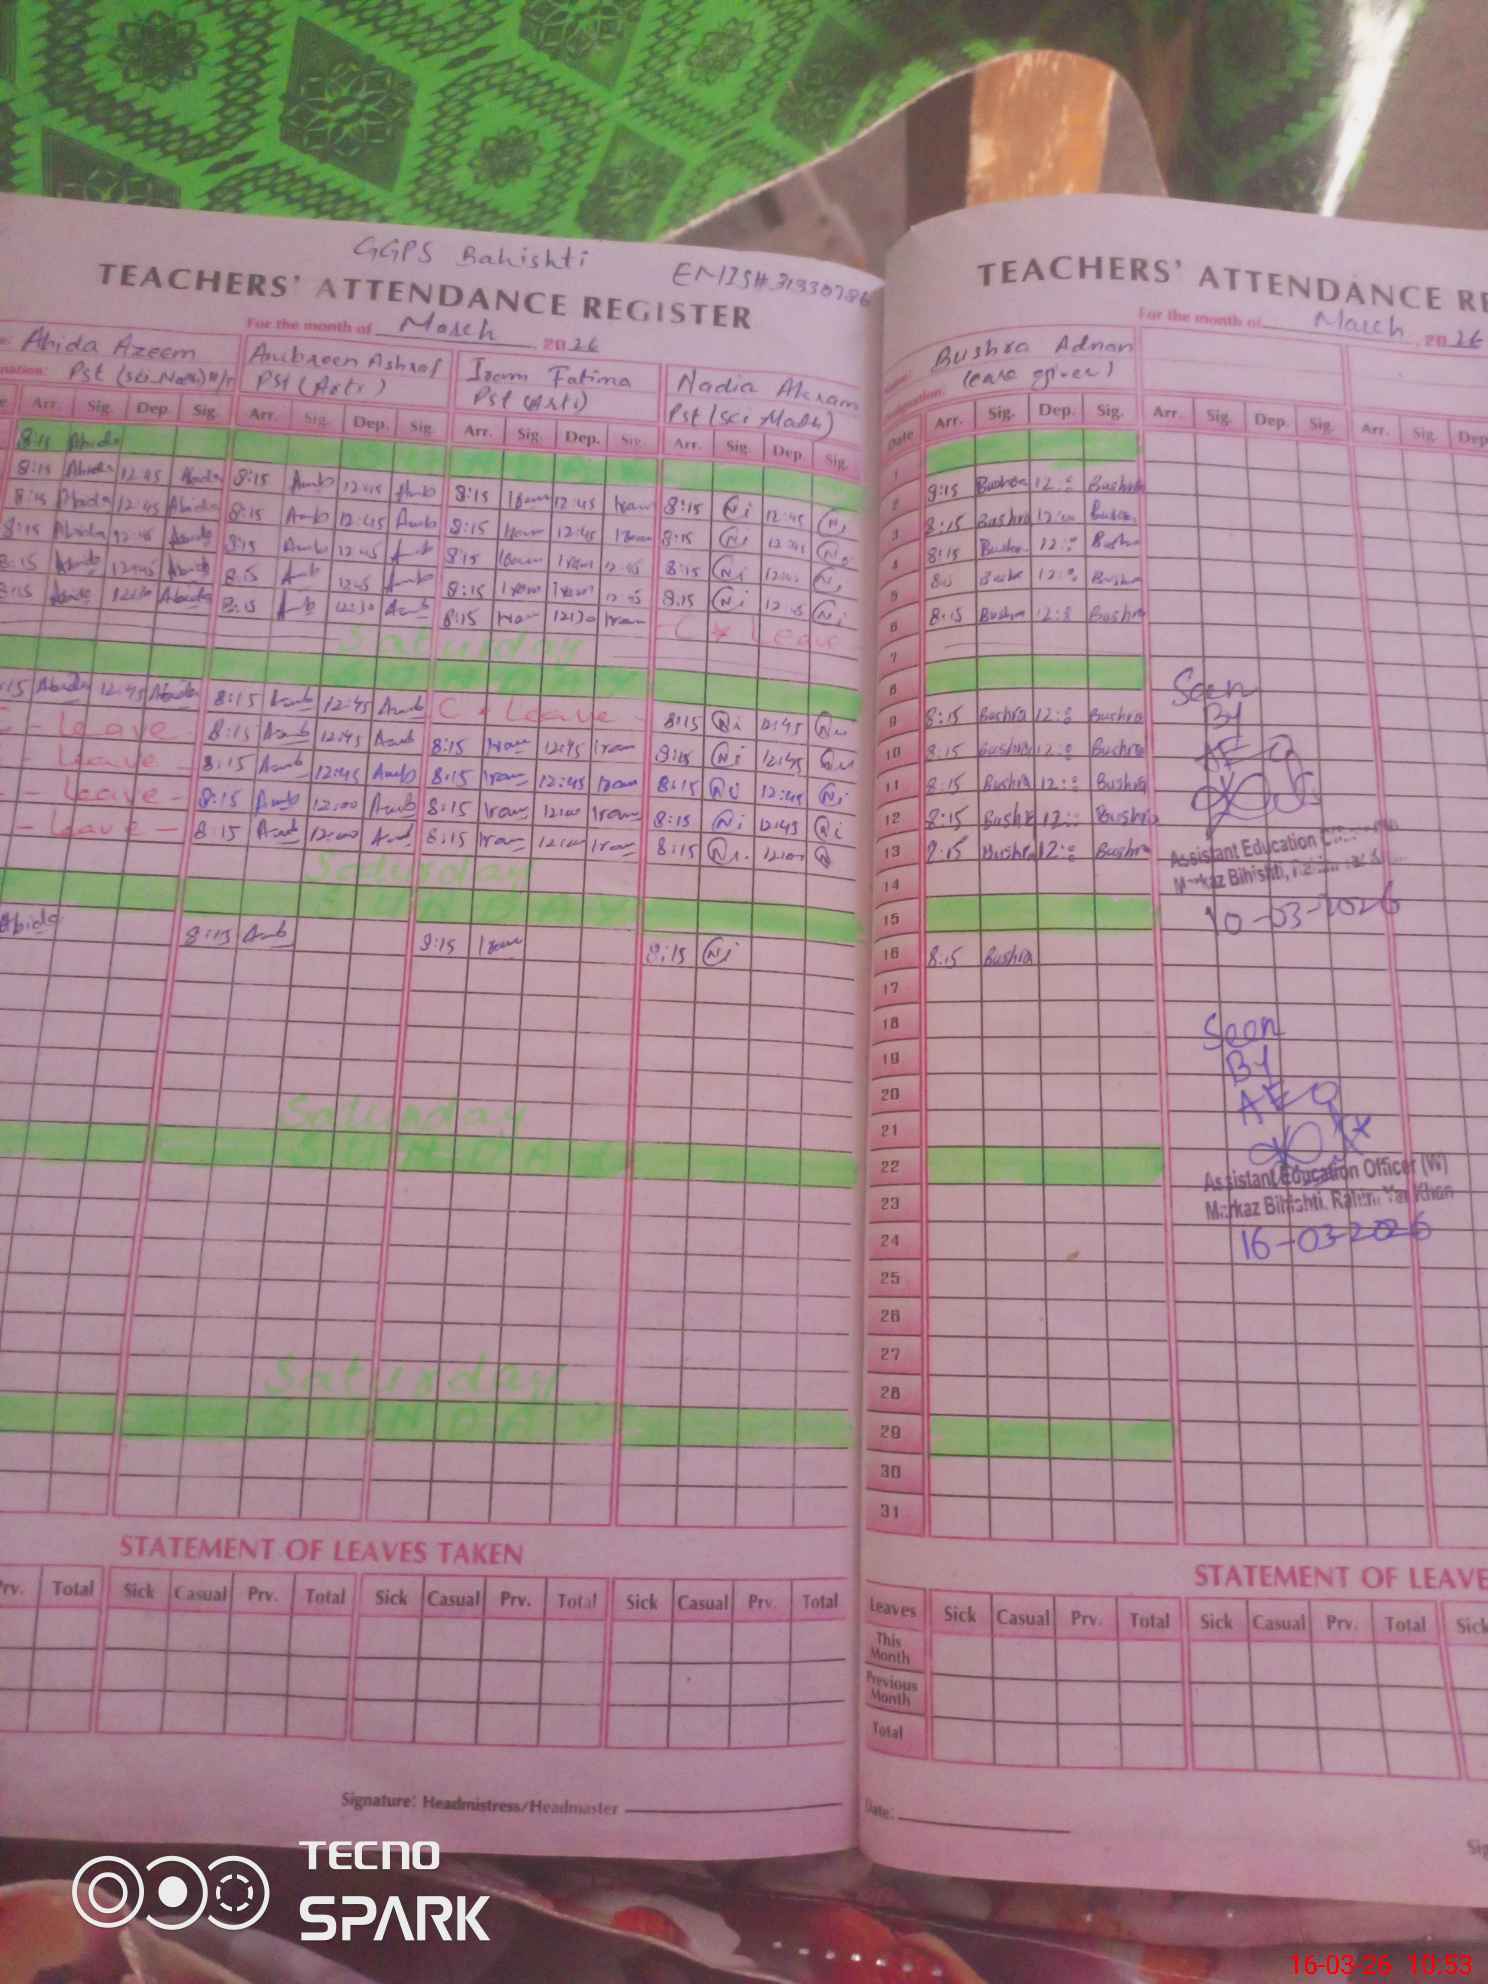 GGPS Bahishti
EMIS# 31330786
TEACHERS' ATTENDANCE REGISTER
For the month of March, 2026
Abida Azeem
Pst (Sci_Math) H/T
Ambreen Ashraf
Pst (Arts)
Irem Fatima
Pst (Arts)
Nadia Akram
Pst (Sci Math)
Arr. Sig. Dep. Sig. Arr. Sig. Dep. Sig. Arr. Sig. Dep. Sig. Arr. Sig. Dep. Sig.
8:15 Abida
8:15 Abida 12:45 Abida 8:15 Amb 12:45 Amb 8:15 Iram 12:45 Iram 8:15 Ni 12:45 Ni
8:15 Abida 12:45 Abida 8:15 Amb 12:45 Amb 8:15 Iram 12:45 Iram 8:15 Ni 12:45 Ni
8:15 Abida 12:45 Abida 8:15 Amb 12:45 Amb 8:15 Iram Iram 12:45 8:15 Ni 12:45 Ni
8:15 Abida 12:45 Abida 8:15 Amb 12:45 Amb 8:15 Iram Iram 12:45 8:15 Ni 12:45 Ni
8:15 Abida 12:30 Abida 8:15 Amb 12:30 Amb 8:15 Iram 12:30 Iram C * Leave
Saturday
SUNDAY
:15 Abida 12:45 Abida 8:15 Amb 12:45 Amb C * Leave - 8:15 Ni 12:45 Ni
C - Leave 8:15 Amb 12:45 Amb 8:15 Iram 12:45 Iram 8:15 Ni 12:45 Ni
- Leave - 8:15 Amb 12:45 Amb 8:15 Iram 12:45 Iram 8:15 Ni 12:45 Ni
- Leave - 8:15 Amb 12:00 Amb 8:15 Iram 12:00 Iram 8:15 Ni 12:45 Ni
- Leave - 8:15 Amb 12:00 Amb 8:15 Iram 12:00 Iram 8:15 Ni 12:00
Saturday
SUNDAY
Abida 8:15 Amb 8:15 Iram 8:15 Ni
Saturday
SUNDAY
Saturday
SUNDAY
STATEMENT OF LEAVES TAKEN
Prv. Total Sick Casual Prv. Total Sick Casual Prv. Total Sick Casual Prv. Total
Signature: Headmistress/Headmaster
TEACHERS' ATTENDANCE RE
For the month of March, 2026
Bushra Adnan
(care giver)
Date Arr. Sig. Dep. Sig. Arr. Sig. Dep. Sig. Arr. Sig. Dep
1
2 8:15 Bushra 12:00 Bushra
3 8:15 Bushra 12:00 Bushra
4 8:15 Bushra 12:00 Bushra
5 8:15 Bushra 12:00 Bushra
6 8:15 Bushra 12:00 Bushra
7
8
9 8:15 Bushra 12:00 Bushra
10 8:15 Bushra 12:00 Bushra
11 8:15 Bushra 12:00 Bushra
12 8:15 Bushra 12:00 Bushra
13 8:15 Bushra 12:00 Bushra
14
15
16 8:15 Bushra
17
18
19
20
21
22
23
24
25
26
27
28
29
30
31
Seen
By
AEO
Assistant Education
Markaz Bihishti,
10-03-2026
Seen
By
AEO
Assistant Education Officer (W)
Markaz Bihishti, Rahim Yar Khan
16-03-2026
STATEMENT OF LEAVE
Leaves Sick Casual Prv. Total Sick Casual Prv. Total Sick
This Month
Previous Month
Total
Date:
Sig
TECNO
SPARK
16-03-26 10:53